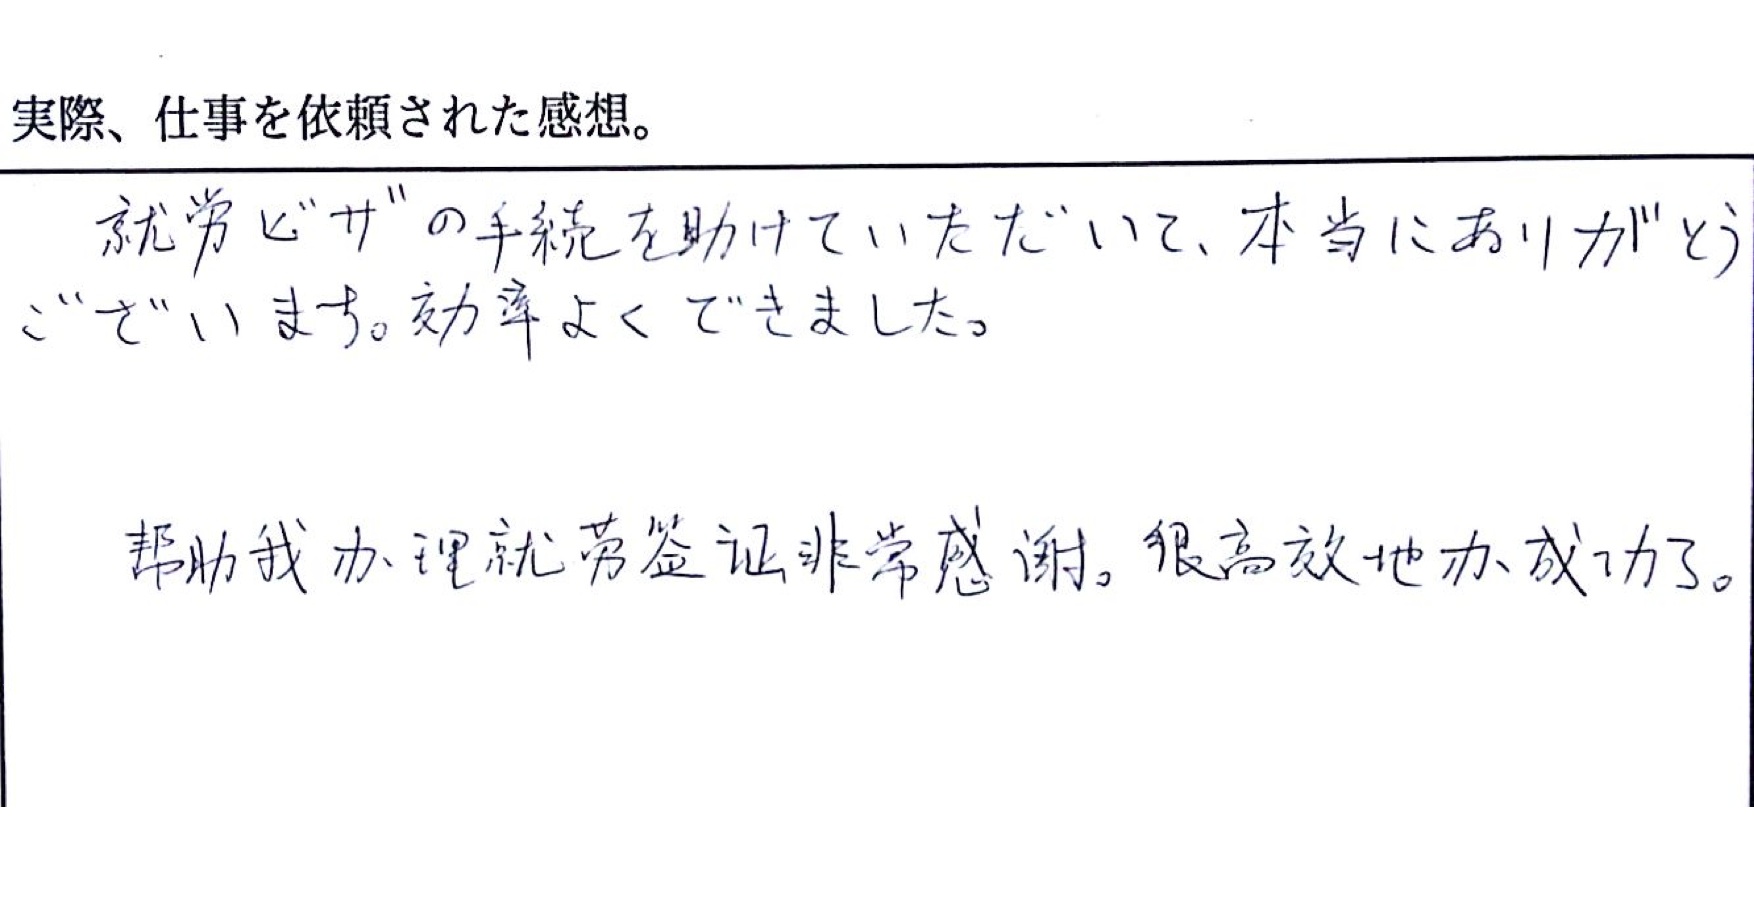 実際、仕事を依頼された感想。
就労ビザの手続を助けていただいて、本当にありがとう
ございます。効率よくできました。
帮助我办理就劳签证非常感谢。很高效地办成功了。